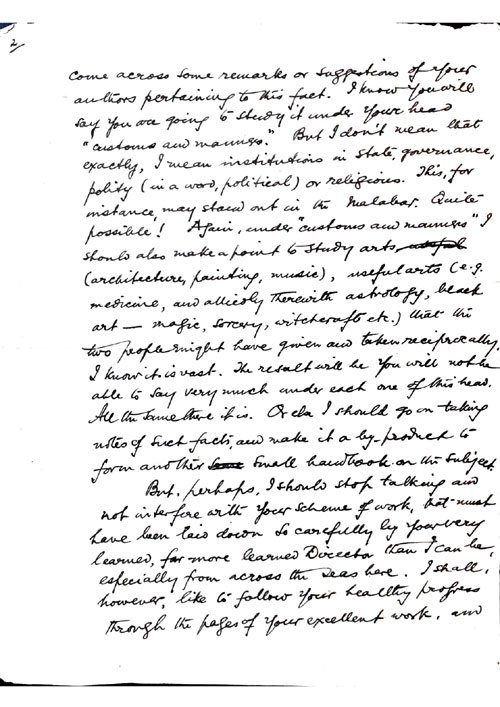 2/
come across some remarks or suggestions of your
authors pertaining to this fact. I know you will
say you are going to study it under your head
"customs and manners." But I don't mean that
exactly, I mean institutions in state, governance,
polity (in a word, political) or religious. This, for
instance, may stand out in the Malabar. Quite
possible! Again, under "customs and manners" I
should also make a point to study arts, useful
(architecture, painting, music), useful arts (e.g.
medicine, and alliedly therewith astrology, black
art — magic, sorcery, witchcraft etc.) that the
two people might have given and taken reciprocally.
I know it is vast. The result will be you will not be
able to say very much under each one of this head.
All the same there it is. Or else I should go on taking
notes of such facts, and make it a by-product to
form another small handbook on the subject.
But, perhaps, I should stop talking and
not interfere with your scheme of work, that must
have been laid down so carefully by your very
learned, far more learned Director than I can be,
especially from across the seas here. I shall,
however, like to follow your healthy progress
through the pages of your excellent work, and